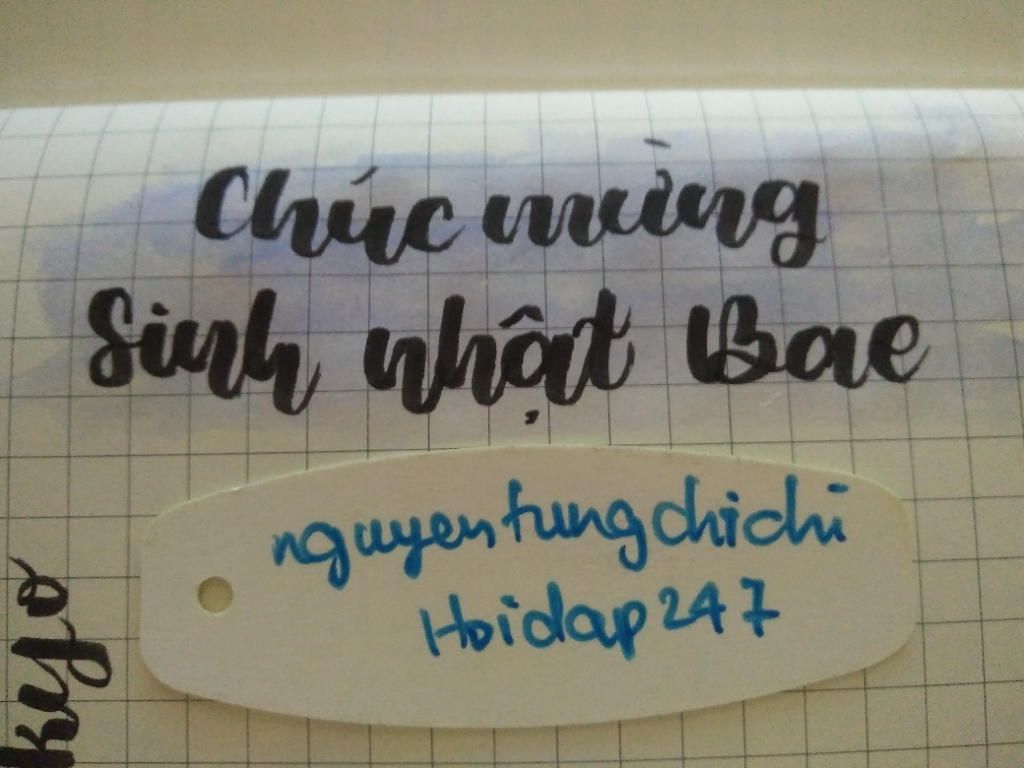 Chúc mừng
Sinh nhật Bae
nguyentungchichi
Hoidap247
kyo